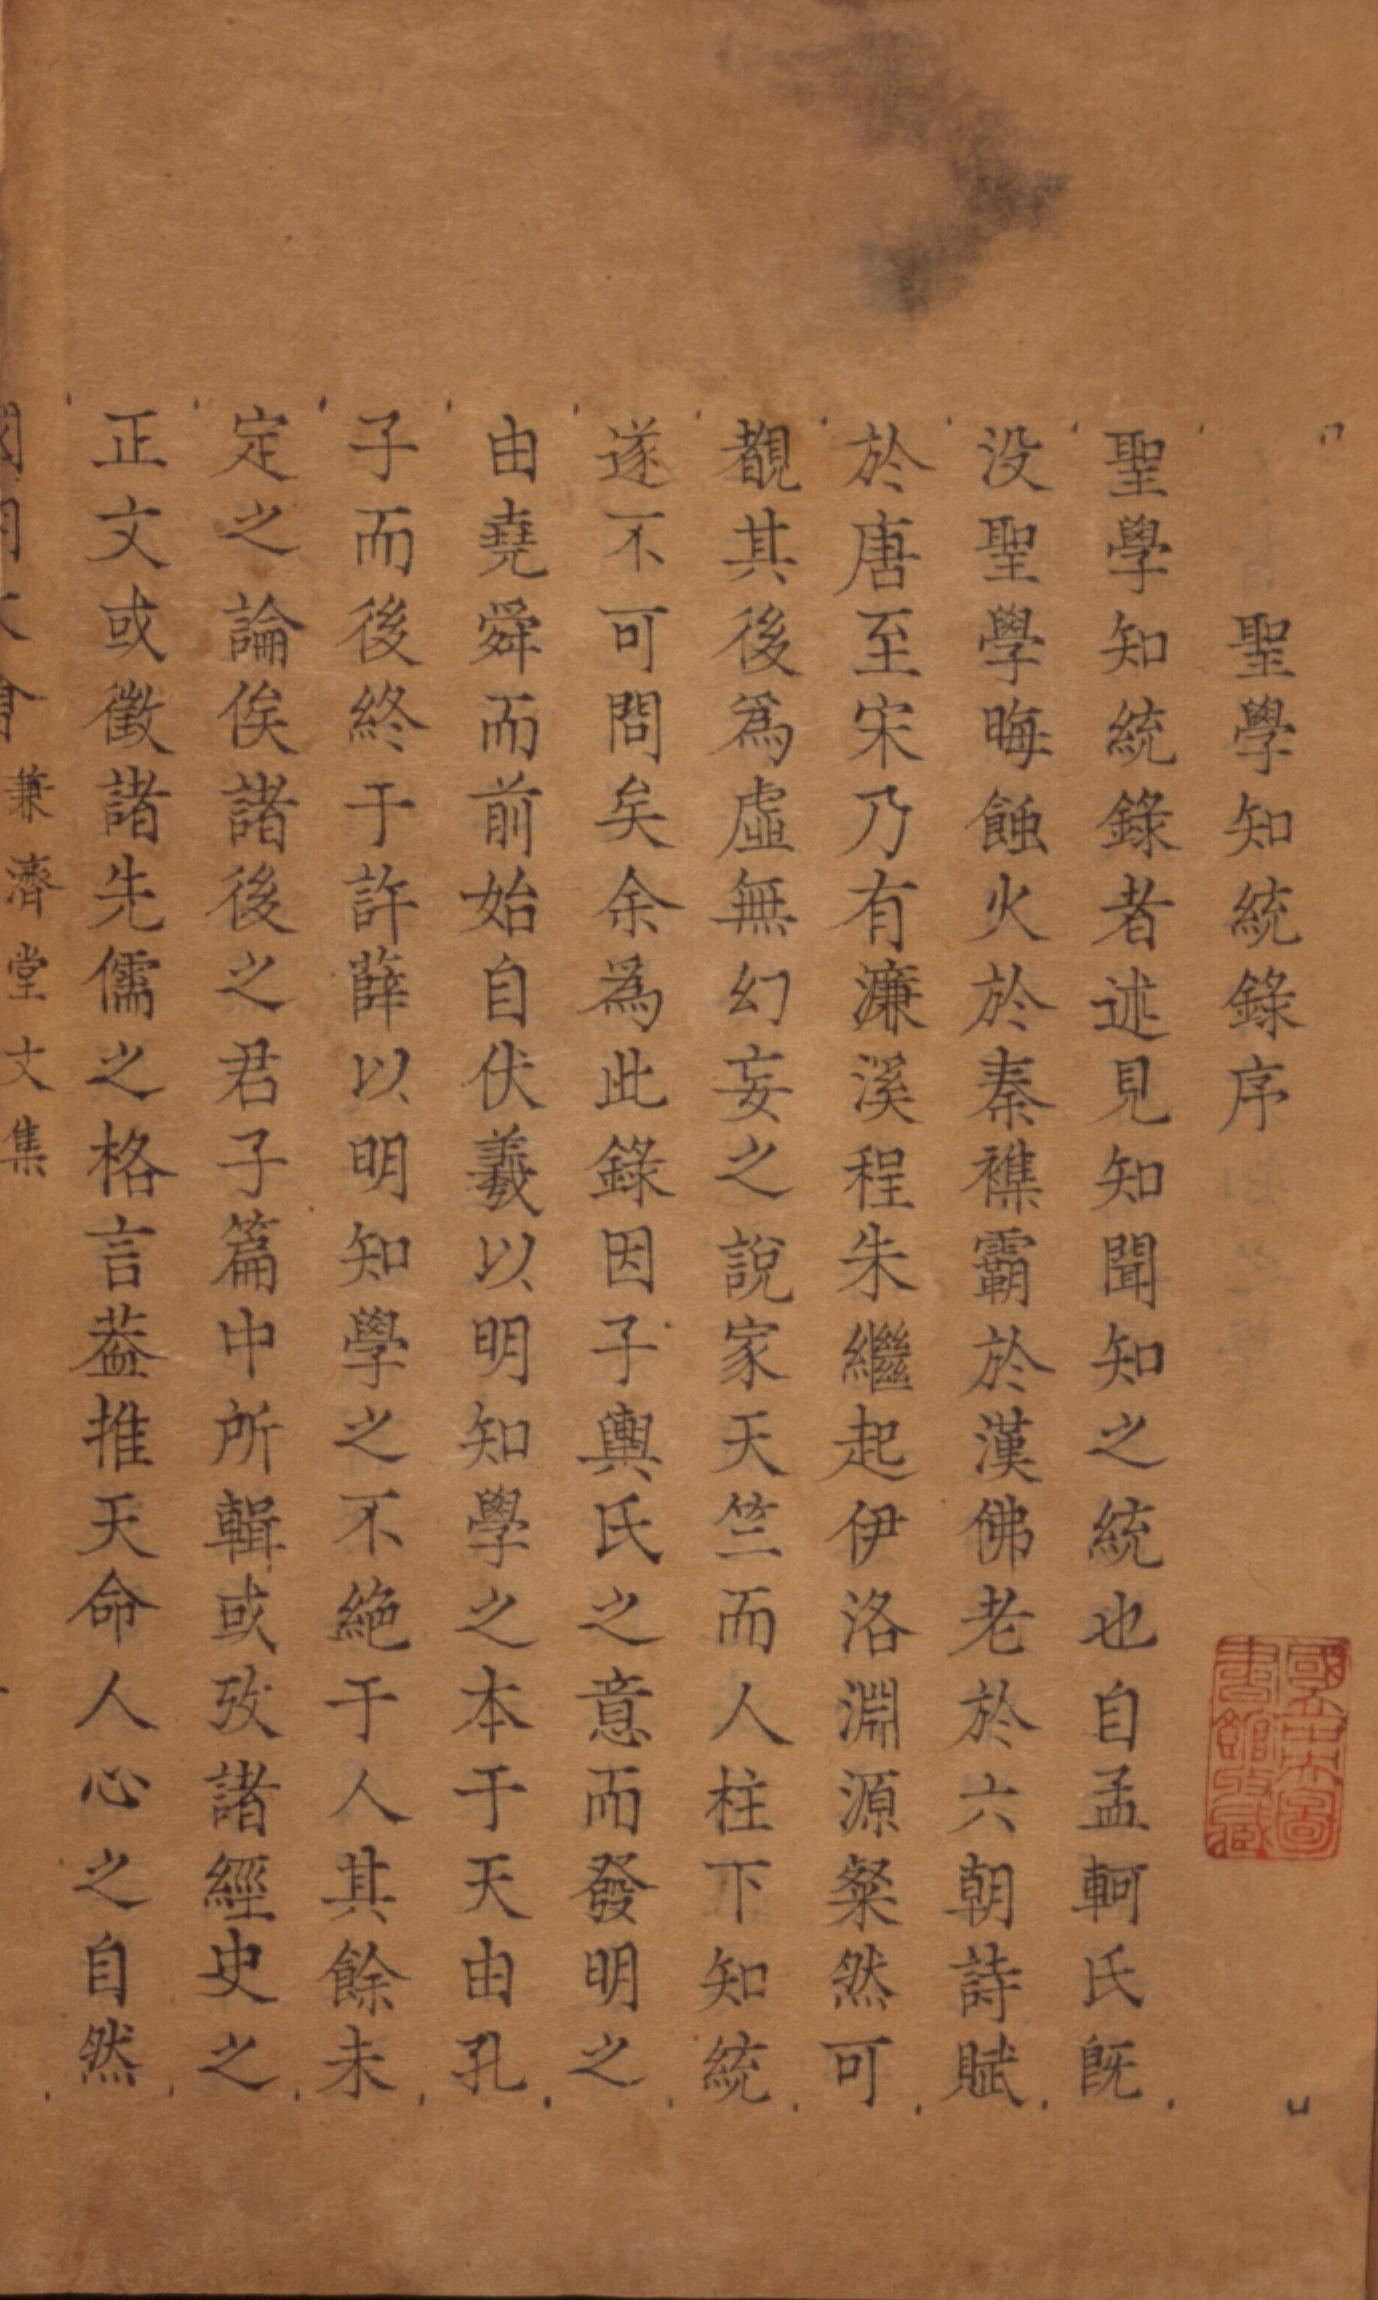 聖學知統錄序
聖學知統錄者述見知聞知之統也自孟軻氏既
没聖學晦蝕火於秦襍霸於漢佛老於六朝詩賦
於唐至宋乃有濂溪程朱繼起伊洛淵源粲然可
覩其後爲虛無幻妄之說家天竺而人柱下知統
遂不可問矣余為此錄因子輿氏之意而發明之
由堯舜而前始自伏羲以明知學之本于天由孔
子而後終于許薛以明知學之不絶于人其餘未
定之論俟諸後之君子篇中所輯或攷諸經史之
正文或徵諸先儒之格言葢推天命人心之自然
國朝文會 兼濟堂文集
國立中央圖書館收藏